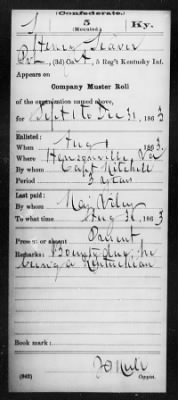 (Confederate.)
5 Ky.
(Mounted.)
Henry
Pvt, (3d) Co. K, 5 Reg't Kentucky Inf.
Appears on
Company Muster Roll
of the organization named above,
for Sept 1 to Dec 31, 1863
Enlisted:
When Aug 1, 1863.
Where Hansonville, Va
By whom Capt Mitchell
Period 3 years
Last paid:
By whom Maj
To what time Aug 31, 1863
Present or absent Present
Remarks: Bounty due, he
being a Kentuckian
Book mark:
Copyist.